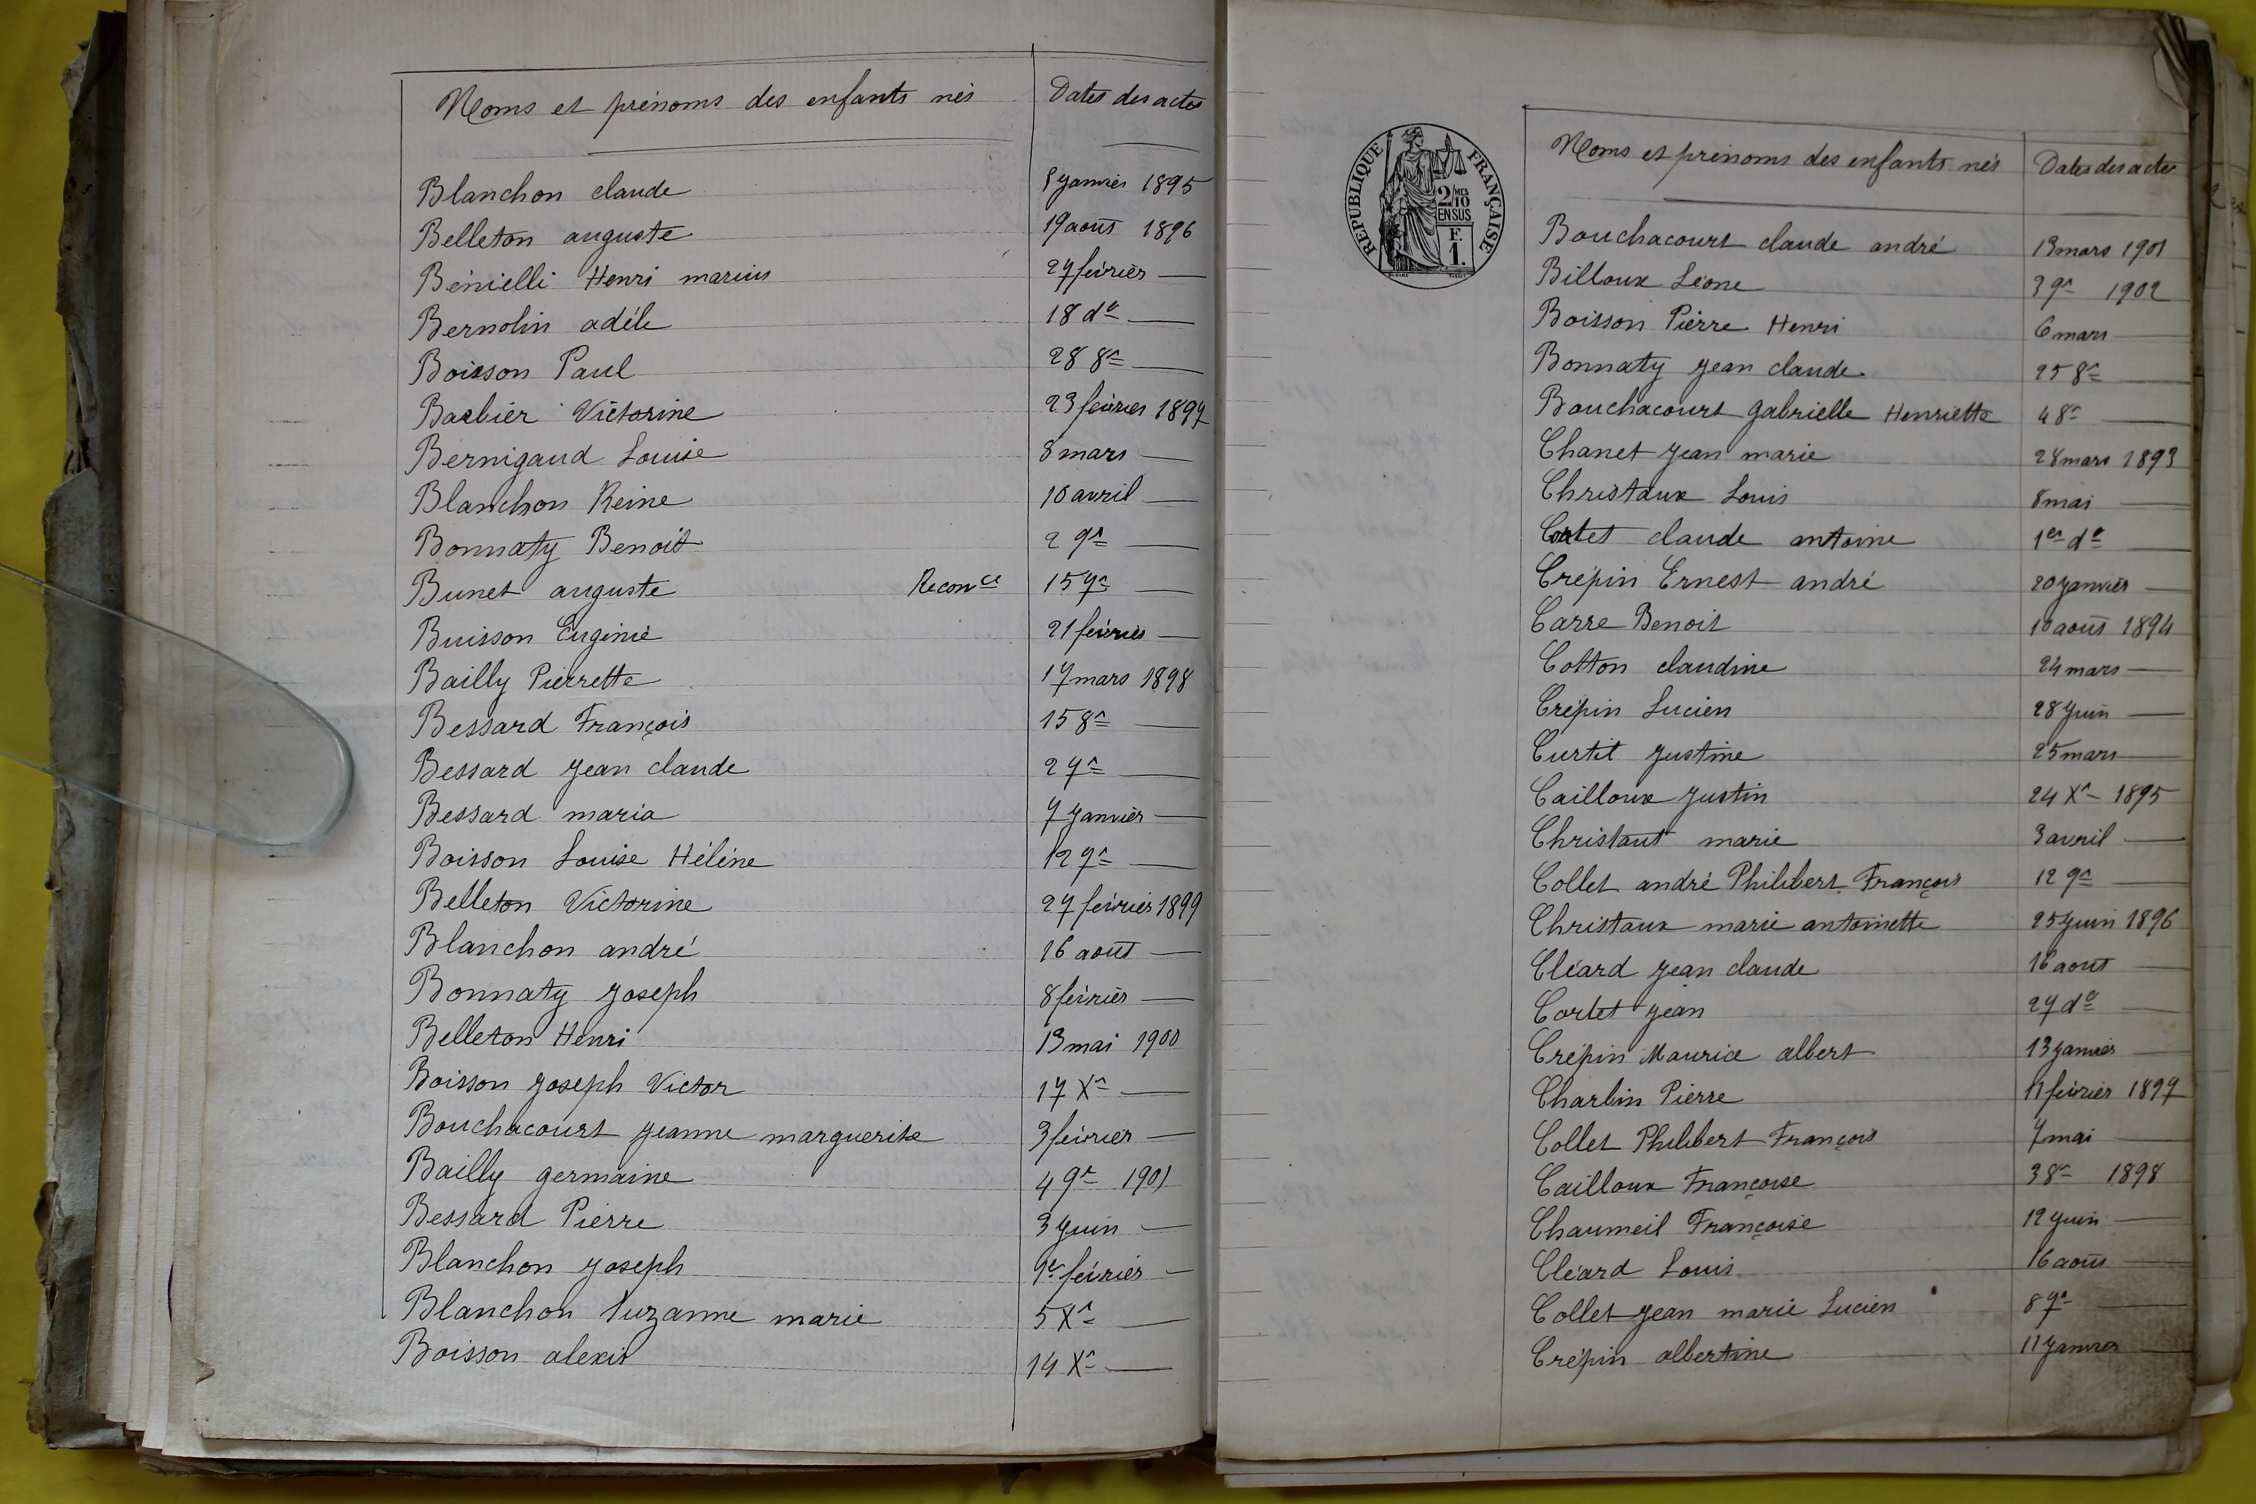 Noms et prénoms des enfants nés Dates des actes
Blanchon claude 8 janvier 1895
Belleton auguste 19 août 1896
Bénielli Henri marius 27 février —
Bernolin adèle 18 do —
Boisson Paul 28 8re —
Barbier Victorine 23 février 1897
Bernigaud Louise 8 mars —
Blanchon Reine 10 avril —
Bonnaty Benoit 2 9re —
Bunet auguste Reconce 15 7re —
Buisson Eugénie 21 février —
Bailly Pierrette 17 mars 1898
Bessard François 15 8re —
Bessard jean claude 2 7re —
Bessard maria 7 janvier —
Boisson Louise Hélène 12 9re —
Belleton Victorine 27 février 1899
Blanchon andré 16 août —
Bonnaty joseph 8 février —
Belleton Henri 13 mai 1900
Boisson joseph Victor 17 Xre —
Bouchacourt jeanne marguerite 3 février —
Bailly germaine 4 9re 1901
Bessard Pierre 3 juin —
Blanchon joseph 1er février —
Blanchon Suzanne marie 5 Xre —
Boisson alexis 14 Xre —
REPUBLIQUE FRANÇAISE
2/10 MES
EN SUS
F.
1.
Noms et prénoms des enfants nés Dates des actes
Bouchacourt claude andré 13 mars 1901
Billoux Léone 3 9re 1902
Boisson Pierre Henri 6 mars —
Bonnaty jean claude 25 8re —
Bouchacourt gabrielle Henriette 4 8re —
Chanet jean marie 28 mars 1893
Christaux Louis 8 mai —
Cortet claude antoine 1er do —
Crépin Ernest andré 20 janvier —
Carre Benoit 10 août 1894
Cotton claudine 24 mars —
Crépin Lucien 28 juin —
Curtil justine 25 mars —
Cailloux justin 24 Xre 1895
Christaut marie 3 avril —
Collet andré Philibert François 12 9re —
Christaux marie antoinette 25 juin 1896
Cléard jean claude 16 août —
Cortet jean 27 do —
Crépin Maurice albert 13 janvier —
Charlin Pierre 11 février 1897
Collet Philibert François 7 mai —
Cailloux Françoise 3 8re 1898
Chaumeil Françoise 12 juin —
Cléard Louis 16 août —
Collet jean marie Lucien 8 7re —
Crépin albertine 11 janvier —